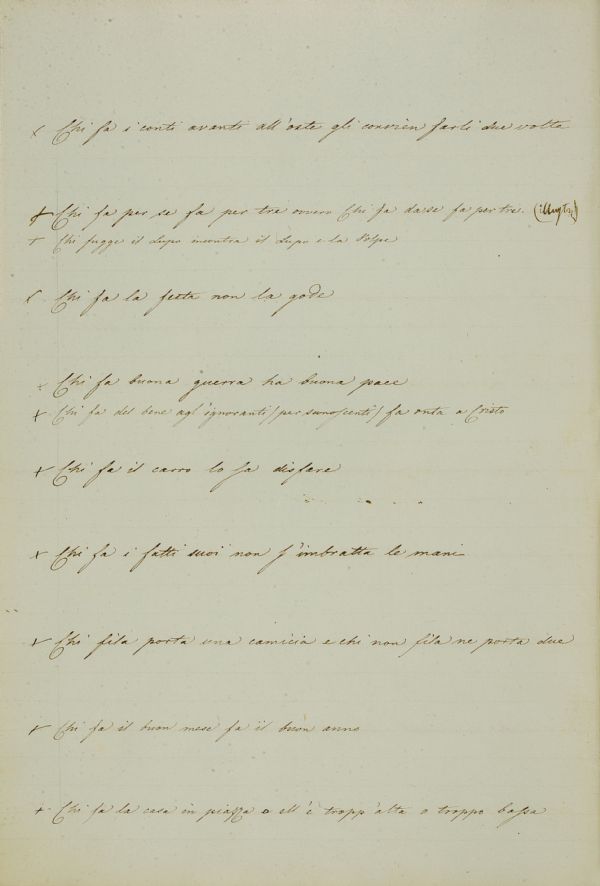 x Chi fa i conti avanti all'oste gli convien farli due volte
+ Chi fa per se fa per tre ovvero Chi fa da se fa per tre.
+ Chi fugge il Lupo incontra il Lupo e la Volpe
x Chi fa la festa non la gode
x Chi fa buona guerra ha buona pace
x Chi fa del bene agl'ignoranti (per fa onta a Cristo
+ Chi fa il carro lo sa disfare
x Chi fa i fatti suoi non s'imbratta le mani
x Chi fila porta una camicia e chi non fila ne porta due
x Chi fa il buon mese fa il buon anno
+ Chi fa la casa in piazza o ell'è tropp'alta o troppo bassa